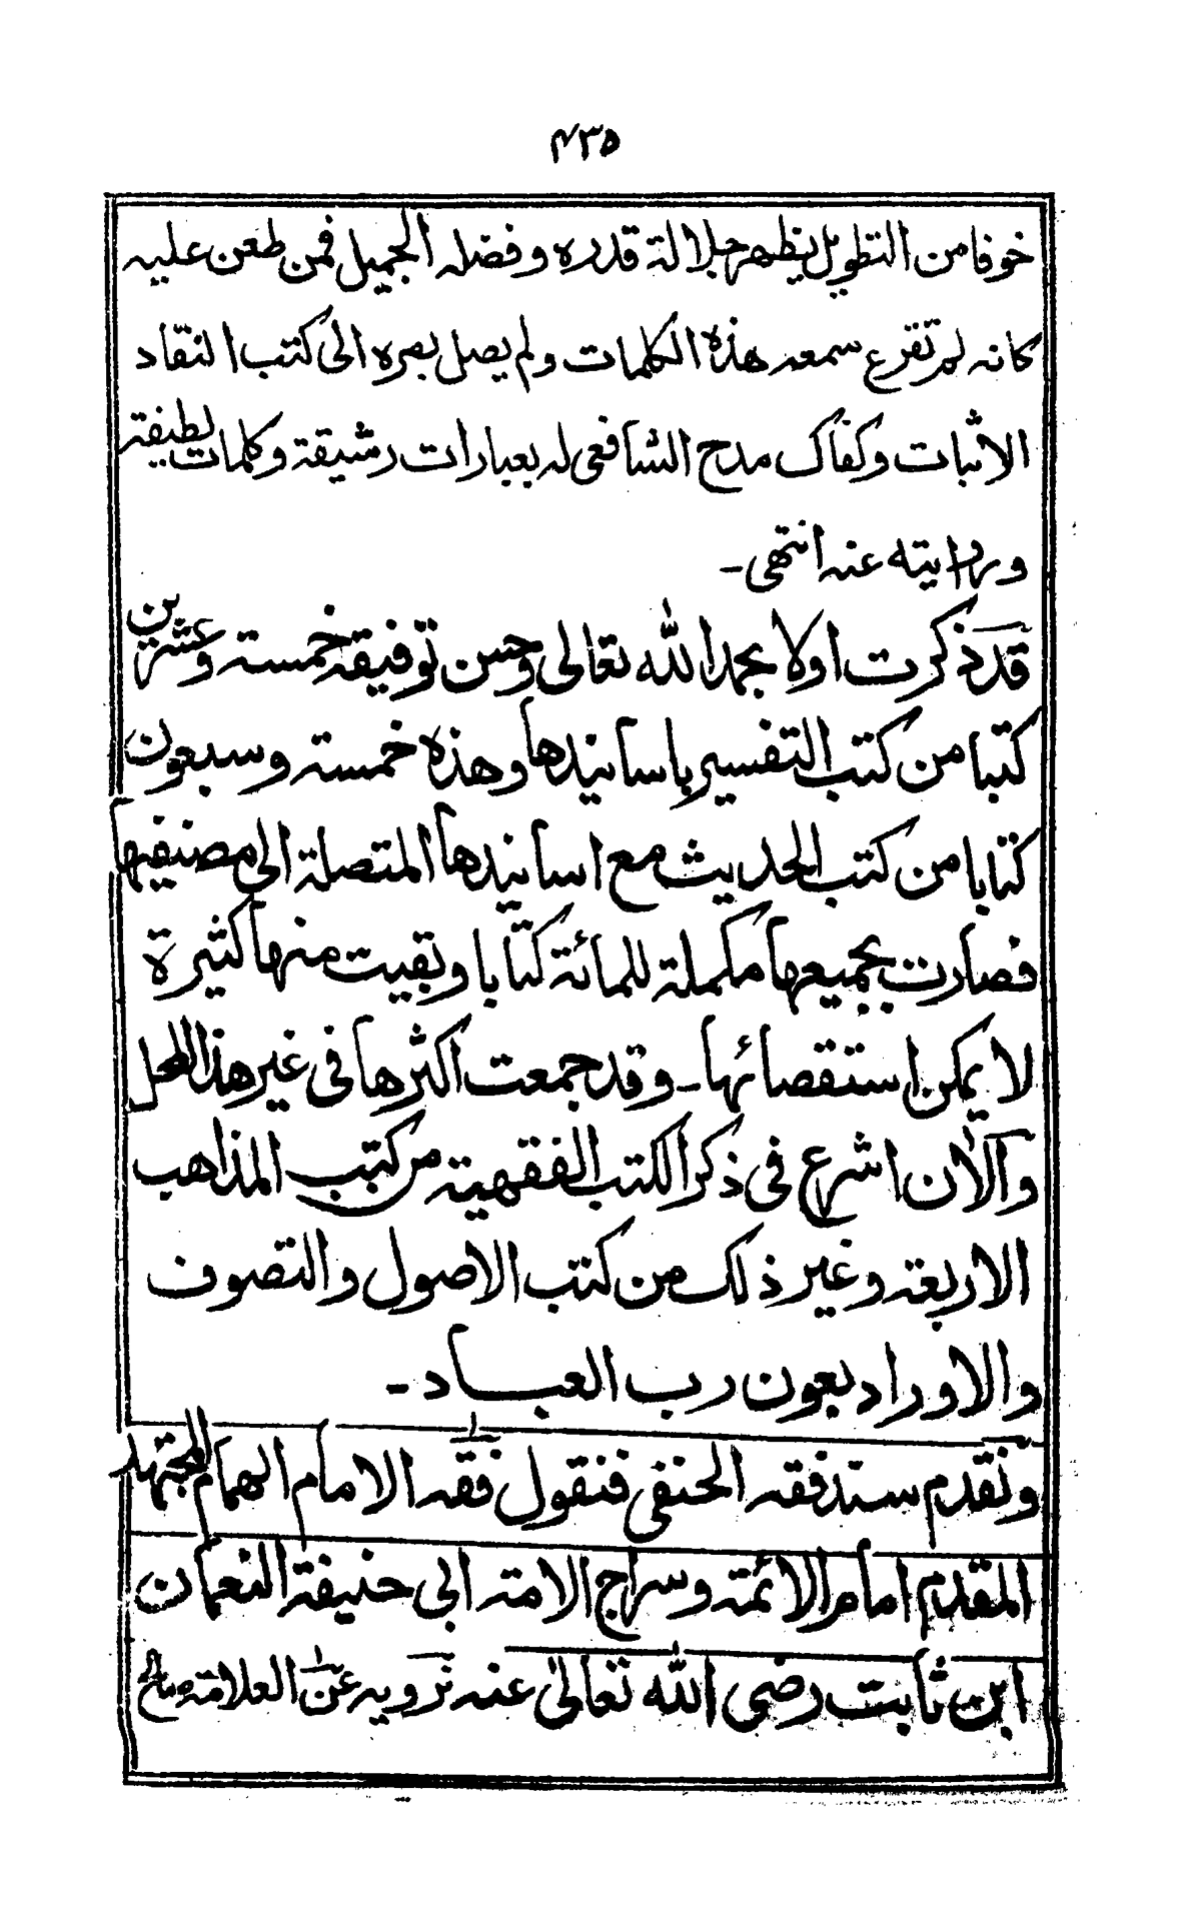 ۴۳۵
خوفا من التطويل يظهر جلالة قدره وفضله الجميل فمن طعن عليه
كانه لم تقرع سمعه هذه الكلمات ولم يصل بصره الى كتب النقاد
الاثبات وكفاك مدح الشافعى له بعبارات رشيقة وكلمات لطيفة
وروايته عنه انتهى-
قد ذكرت اولا بحمد الله تعالى وحسن توفيقه خمسة وعشرين
كتبا من كتب التفسير باسانيدها وهذه خمسة وسبعون
كتابا من كتب الحديث مع اسانيدها المتصلة الى مصنفيها
فصارت بجميعها مكملة للمائة كتابا وبقيت منها كثيرة
لا يمكن استقصائها - وقد جمعت اكثرها فى غير هذا المحل
والآن اشرع فى ذكر الكتب الفقهية من كتب المذاهب
الاربعة وغير ذلك من كتب الاصول والتصوف
والاوراد بعون رب العباد-
ونقدم سند فقه الحنفى فنقول فقه الامام الهمام المجتهد
المقدم امام الائمة وسراج الامة ابى حنيفة النعمان
ابن ثابت رضى الله تعالىٰ عنه نرويه عن العلامة صالح